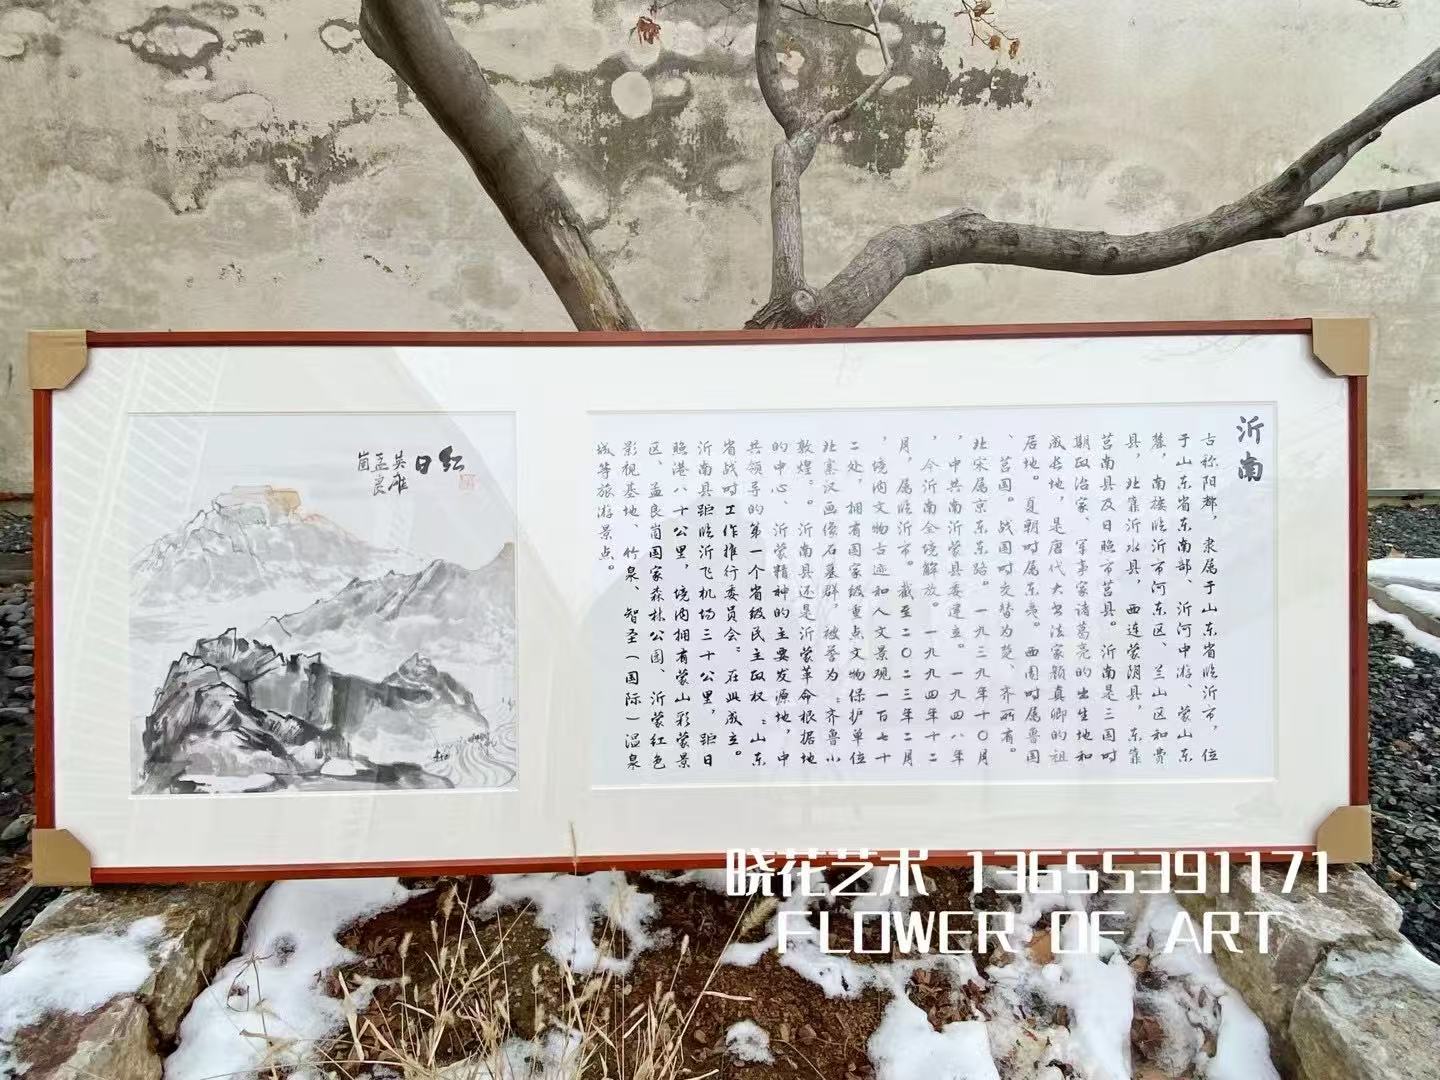 沂南
古称阳都，隶属于山东省临沂市，位
于山东省东南部、沂河中游、蒙山东
麓，南接临沂市河东区、兰山区和费
县，北靠沂水县，西连蒙阴县，东靠
莒南县及日照市莒县。沂南是三国时
期政治家、军事家诸葛亮的出生地和
成长地，是唐代大书法家颜真卿的祖
居地。夏朝时属东夷。西周时属鲁国
、莒国。战国时交替为楚、齐所有。
北宋属京东东路。一九三九年十〇月
，中共南沂蒙县委建立。一九四八年
，今沂南全境解放。一九九四年十二
月，属临沂市。截至二〇二三年二月
，境内文物古迹和人文景观一百七十
二处，拥有国家级重点文物保护单位
北寨汉画像石墓群，被誉为“齐鲁小
敦煌”。沂南县还是沂蒙革命根据地
的中心、沂蒙精神的主要发源地，中
共领导的第一个省级民主政权“山东
省战时工作推行委员会”在此成立。
沂南县距临沂飞机场三十公里，距日
照港八十公里，境内拥有蒙山彩蒙景
区、孟良崮国家森林公园、沂蒙红色
影视基地、竹泉、智圣（国际）温泉
城等旅游景点。
红日
英雄
孟良
崮
晓花艺术 13655391171
FLOWER OF ART